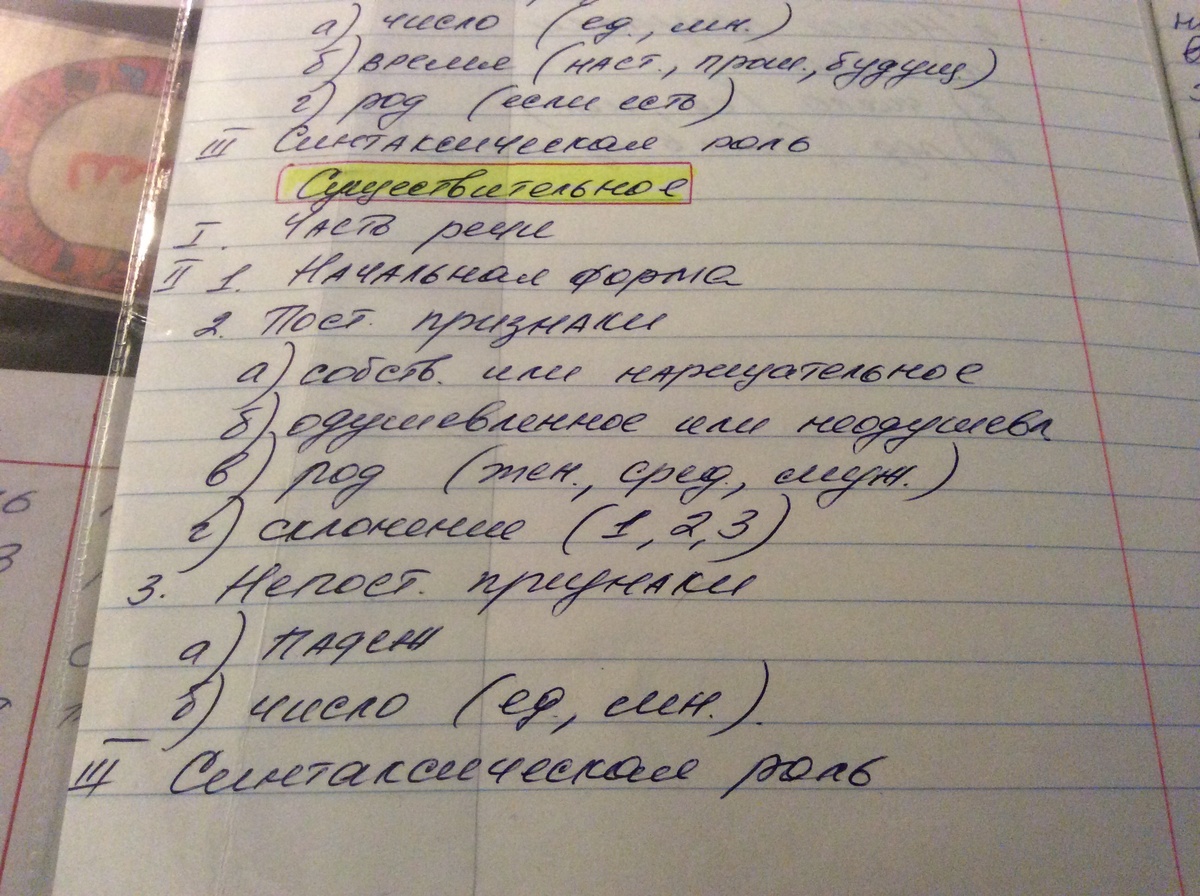 а) число (ед., мн.)
б) время (наст., прош., будущ.)
г) род (если есть)
III Синтаксическая роль
Существительное
I. Часть речи
II 1. Начальная форма
2. Пост. признаки
а) собств. или нарицательное
б) одушевленное или неодушевл
в) род (жен., сред., муж.)
г) склонение (1, 2, 3)
3. Непост. признаки
а) падеж
б) число (ед., мн.).
III Синтаксическая роль